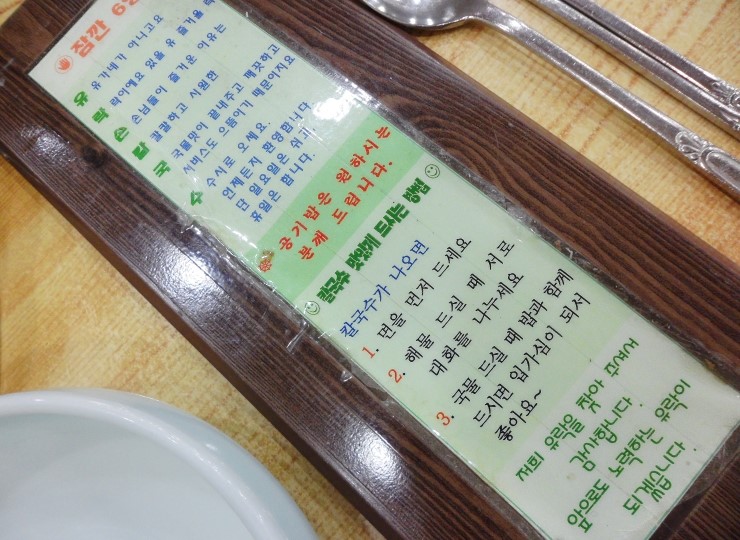 잠깐
유 유가네가 아니고요
락 락이에요 있을 유 즐거울 락
손 손님들이 즐거운 이유는
칼 깔끔하고 시원한
국 국물맛이 끝내주고 깨끗하고
서비스도 으뜸이기 때문이지요
수 수시로 오세요.
언제든지 환영합니다
단 일요일은 쉬고
휴일은 합니다.
공기밥은 원하시는
분께 드립니다.
칼국수 맛있게 드시는 방법
칼국수가 나오면
1. 면을 먼저 드세요
2. 해물 드실 때 서로
대화를 나누세요
3. 국물 드실 때 밥과 함께
드시면 입가심이 되서
좋아요~
저희 유락을 찾아 주셔서
감사합니다.
앞으로도 노력하는 유락이
되겠습니다